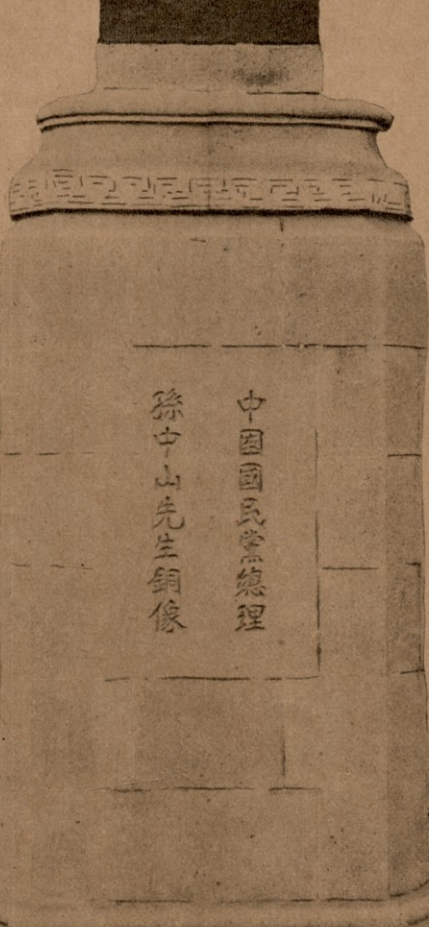 中囯國民黨總理
孫中山先生銅像